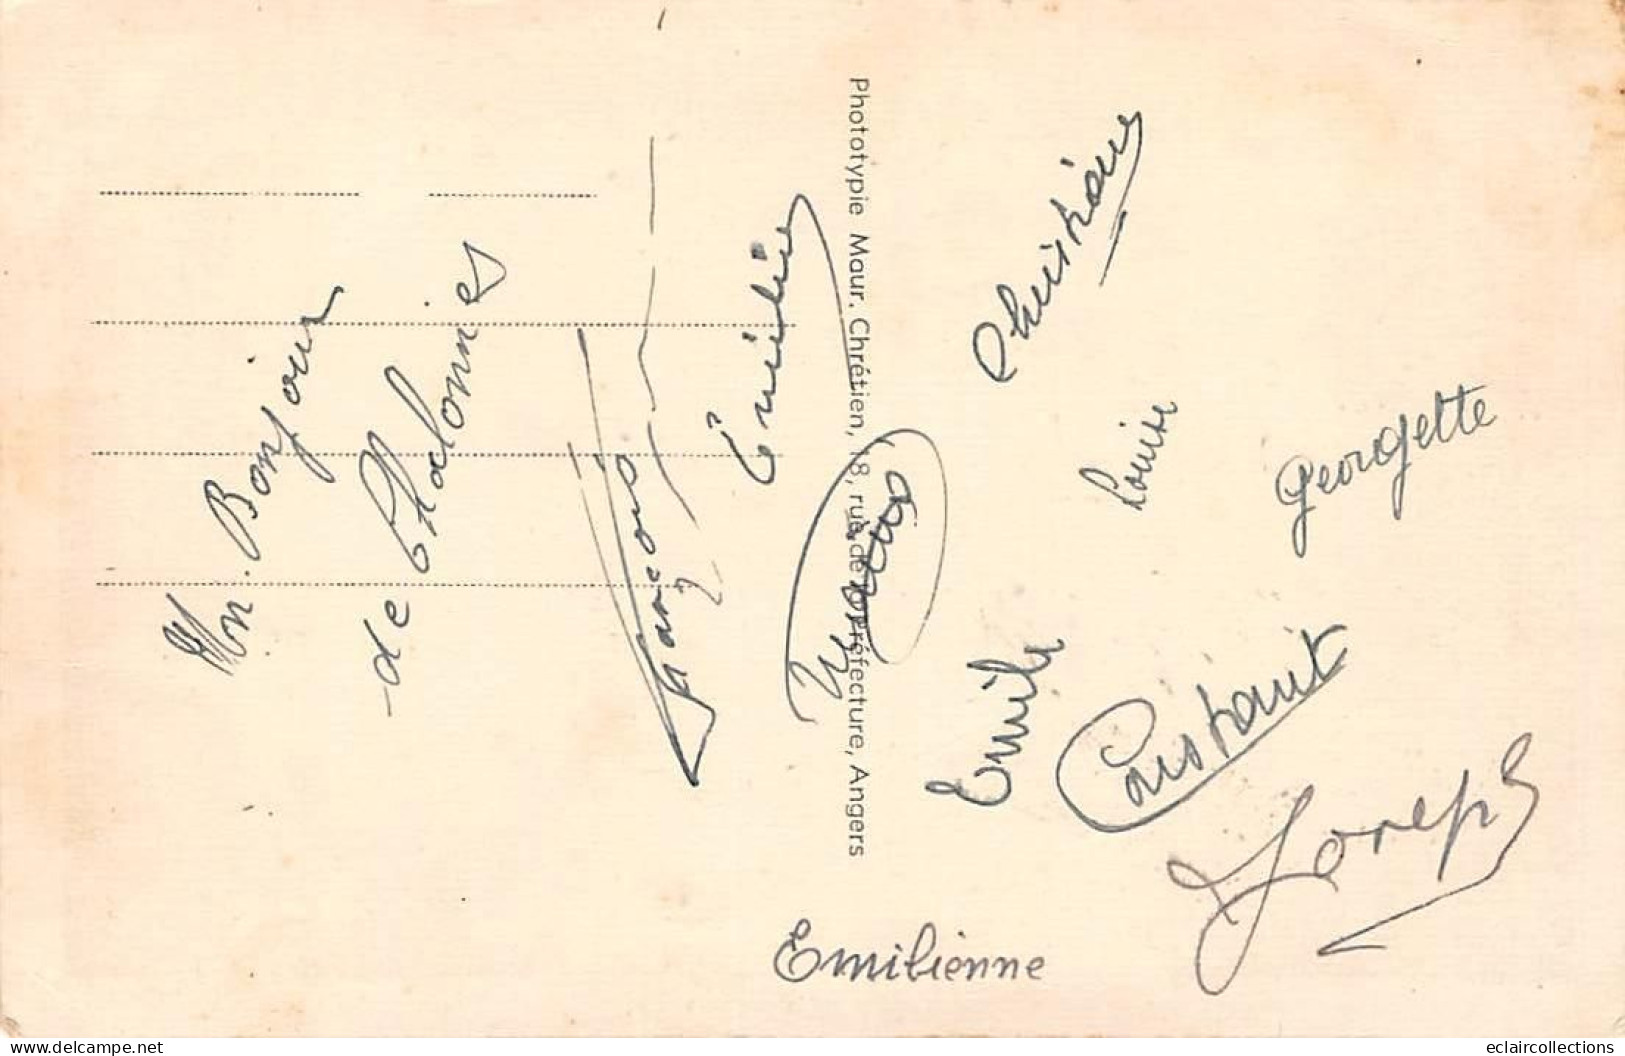 Mon Bonjour
de Chalonnes
François
Emilien
Photothypie Maur. Chrétien, 18, rue de la Préfecture, Angers
Christiane
Louise
Georgette
Emile
Constant
Joseph
Emilienne
www.delcampe.net
eclaircollections